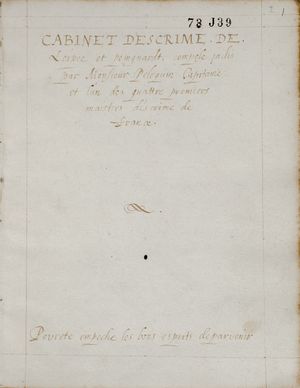 78 J39
2 1
CABINET DESCRIME. DE.
L'espee et poingnardt, compose jadis
par Monsieur Peloquin Capitaine
et lun des quattre premiers
maistres descrime de
france.
Povrete empeche les bons esprits de parvenir